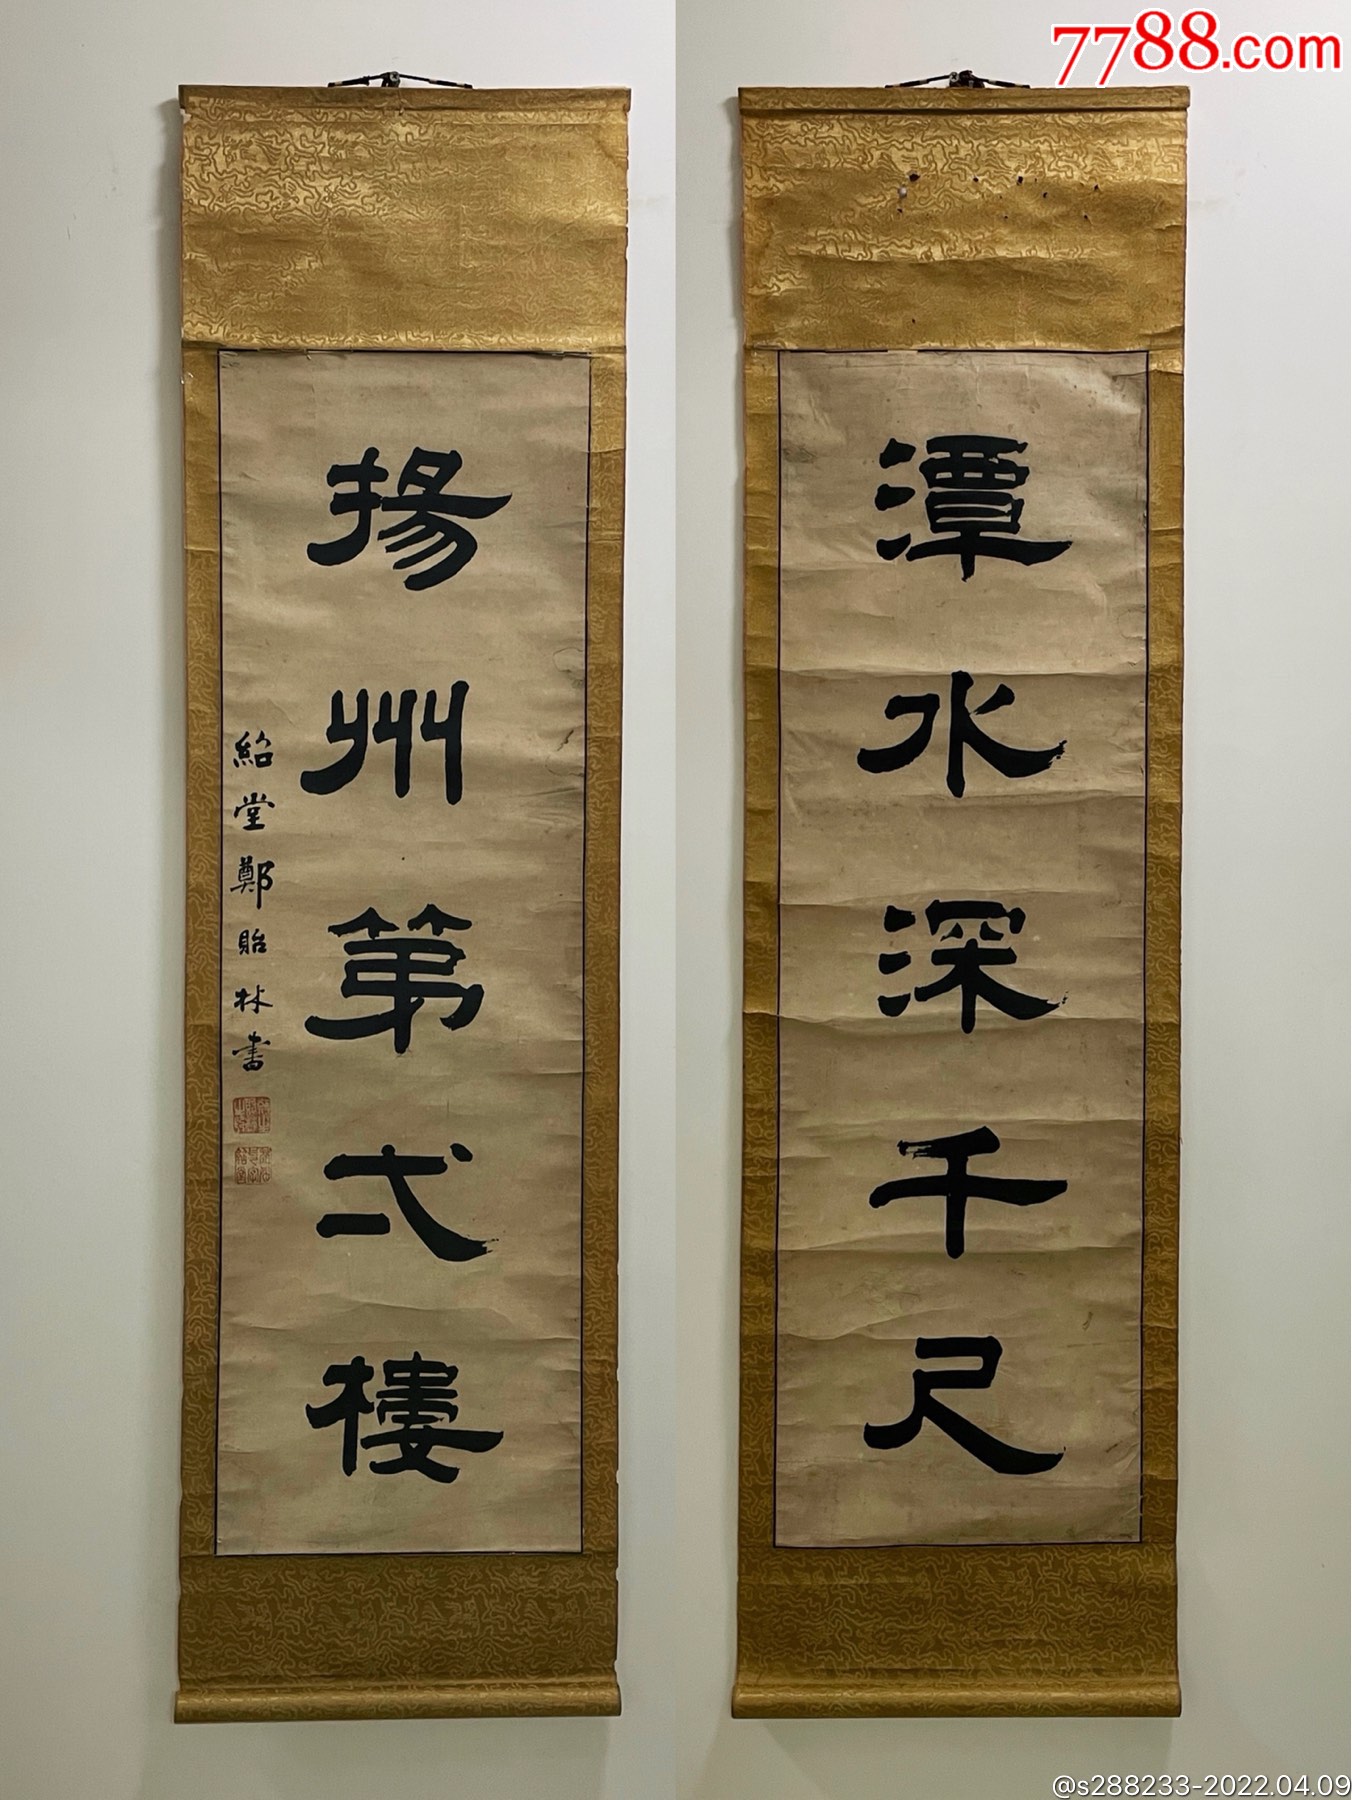 7788.com
潭水深千尺
揚州第弍樓
紹堂鄭貽林書
@s288233-2022.04.09